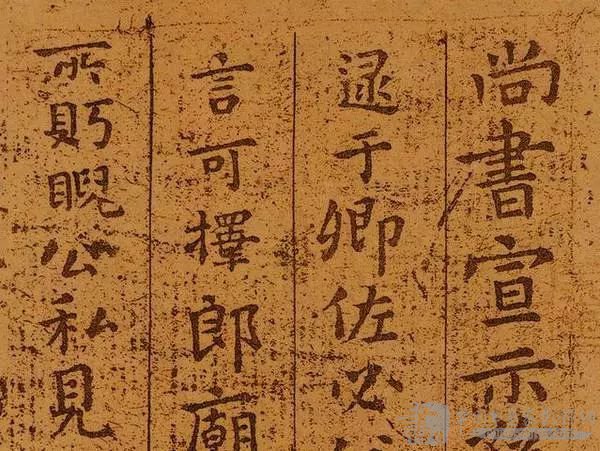 尚書宣示
逮于卿佐必
言可擇郎廟
所眄睨公私見